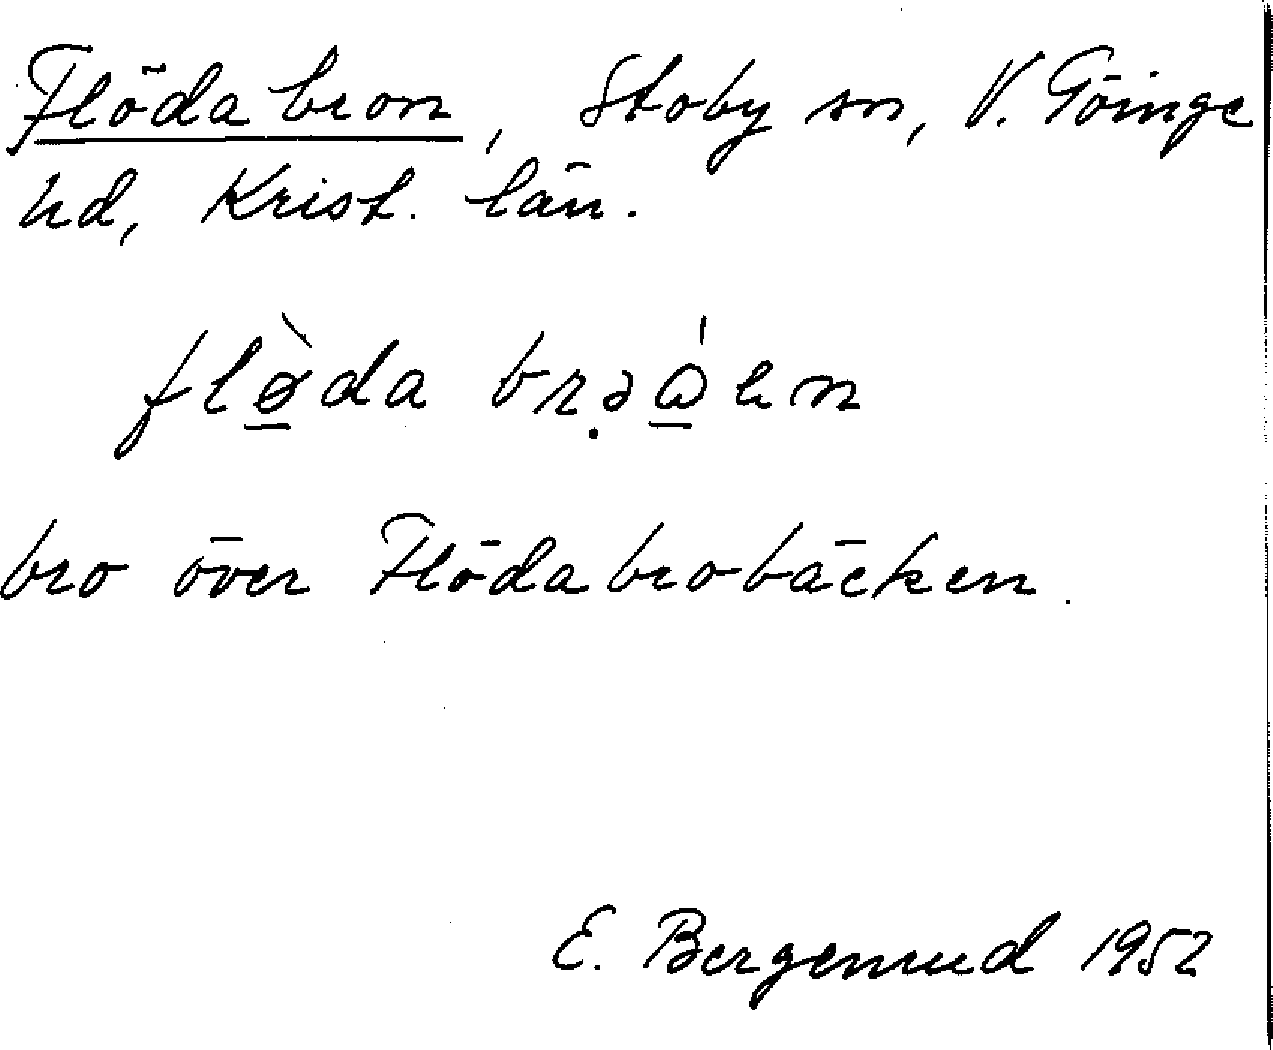 Flödabron, Stoby sn, V. Göinge
hd, Krist. län.
flø̠̀da brəώ̠en
bro över Flödabrobäcken.
E. Bergemud 1952